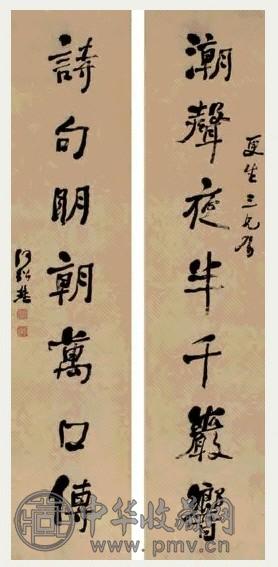 潮聲夜半千巖響
更生三兄
詩句明朝萬口傳
何紹基
中华收藏网
www.pmv.cn